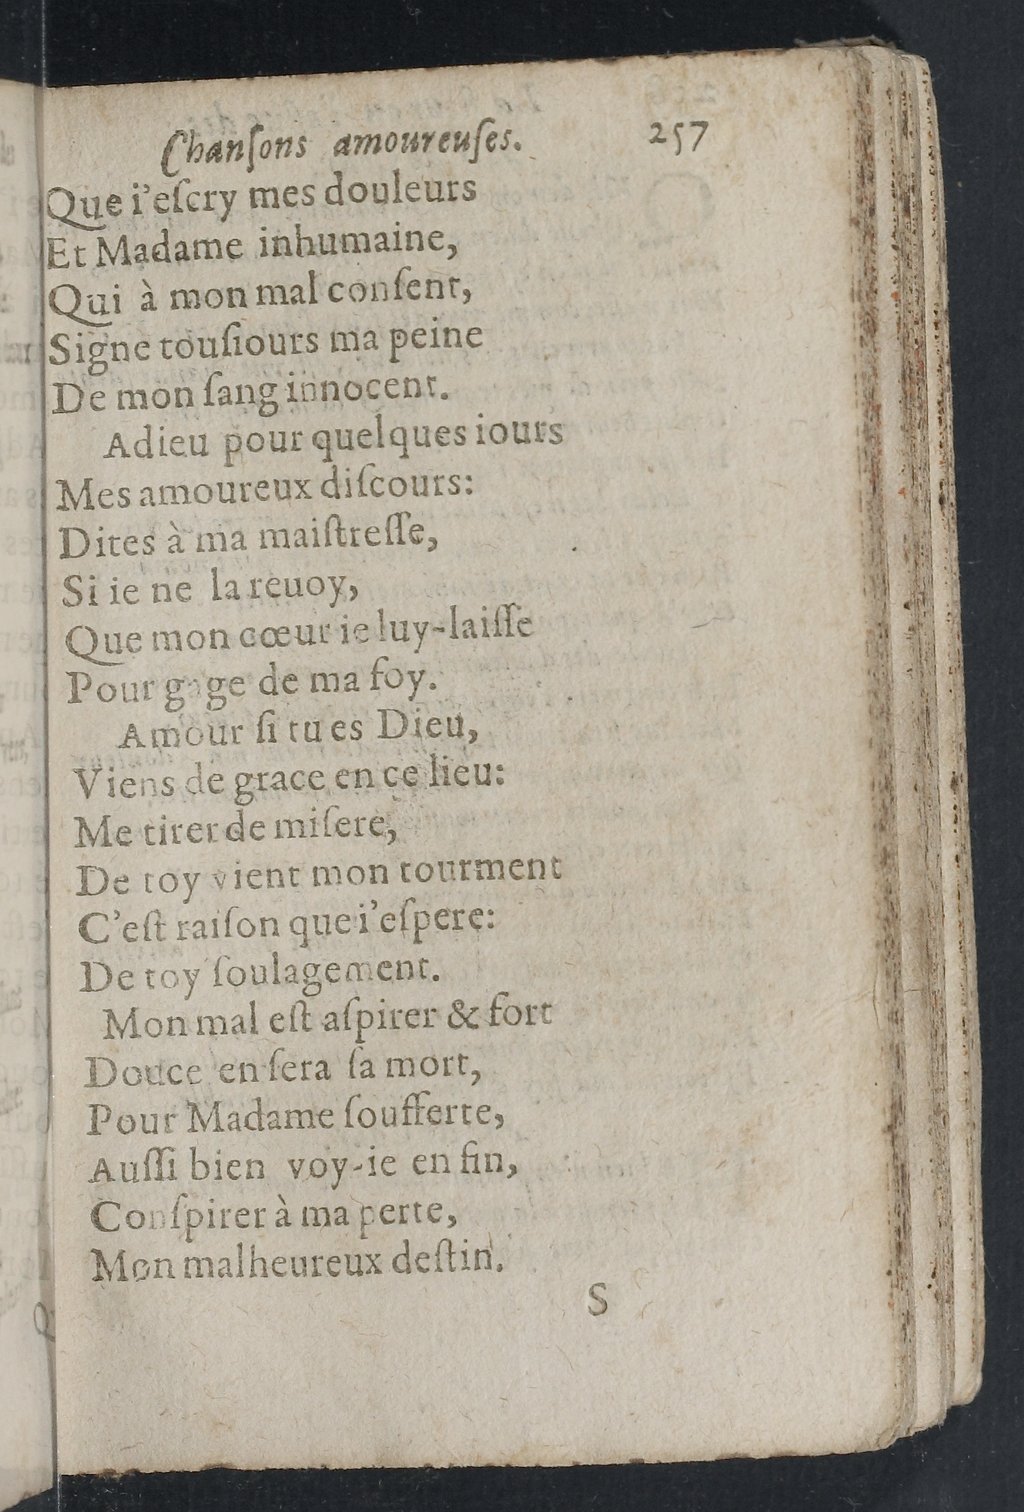 Chanſons amoureuſes. 257
Que i'eſcry mes douleurs
Et Madame inhumaine,
Qui à mon mal conſent,
Signe touſiours ma peine
De mon ſang innocent.
Adieu pour quelques iours
Mes amoureux diſcours:
Dites à ma maiſtreſſe,
Si ie ne la reuoy,
Que mon cœur ie luy-laiſſe
Pour gage de ma foy.
Amour ſi tu es Dieu,
Viens de grace en ce lieu:
Me tirer de miſere,
De toy vient mon tourment
C'eſt raiſon que i'eſpere:
De toy ſoulagement.
Mon mal eſt aſpirer & fort
Douce en ſera ſa mort,
Pour Madame ſoufferte,
Auſſi bien voy-ie en fin,
Conſpirer à ma perte,
Mon malheureux deſtin.
S